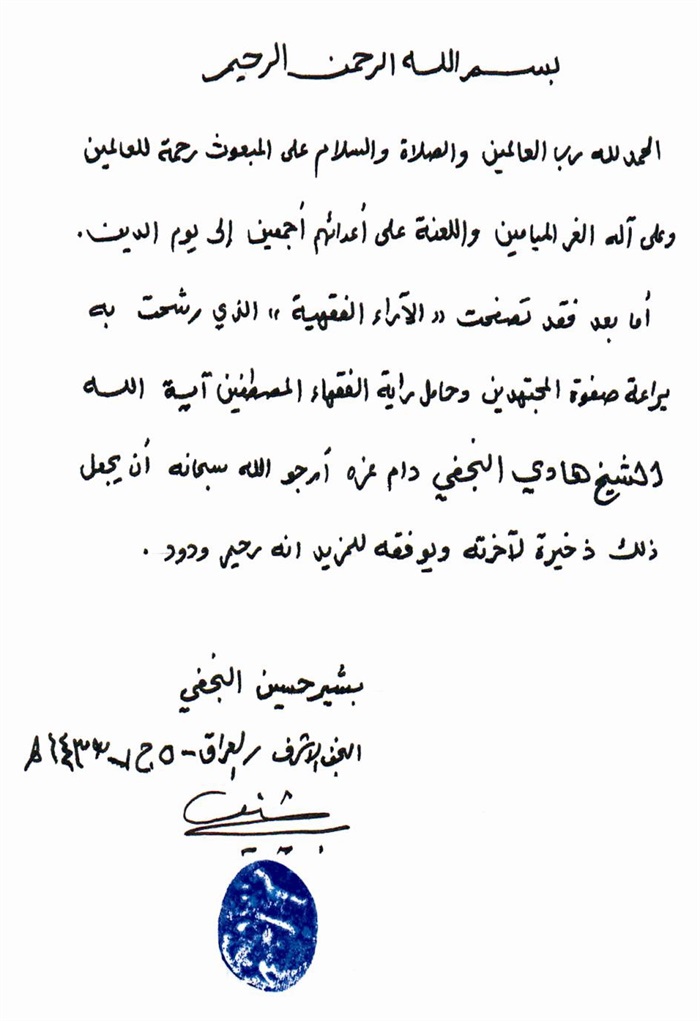 بسم الله الرحمن الرحيم
الحمد لله رب العالمين والصلاة والسلام على المبعوث رحمة للعالمين
وعلى آله الغر الميامين واللعنة على أعدائهم أجمعين إلى يوم الدين.
أما بعد فقد تصفحت «الآراء الفقهية» الذي رشحت به
يراعة صفوة المجتهدين وحامل راية الفقهاء المصطفين آية الله
الشيخ هادي النجفي دام عزه أرجو الله سبحانه أن يجعل
ذلك ذخيرة لآخرته ويوفقه للمزيد انه رحيم ودود.
بشير حسين النجفي
النجف الاشرف - العراق - ٥ ج١ ١٤٣٣ هـ